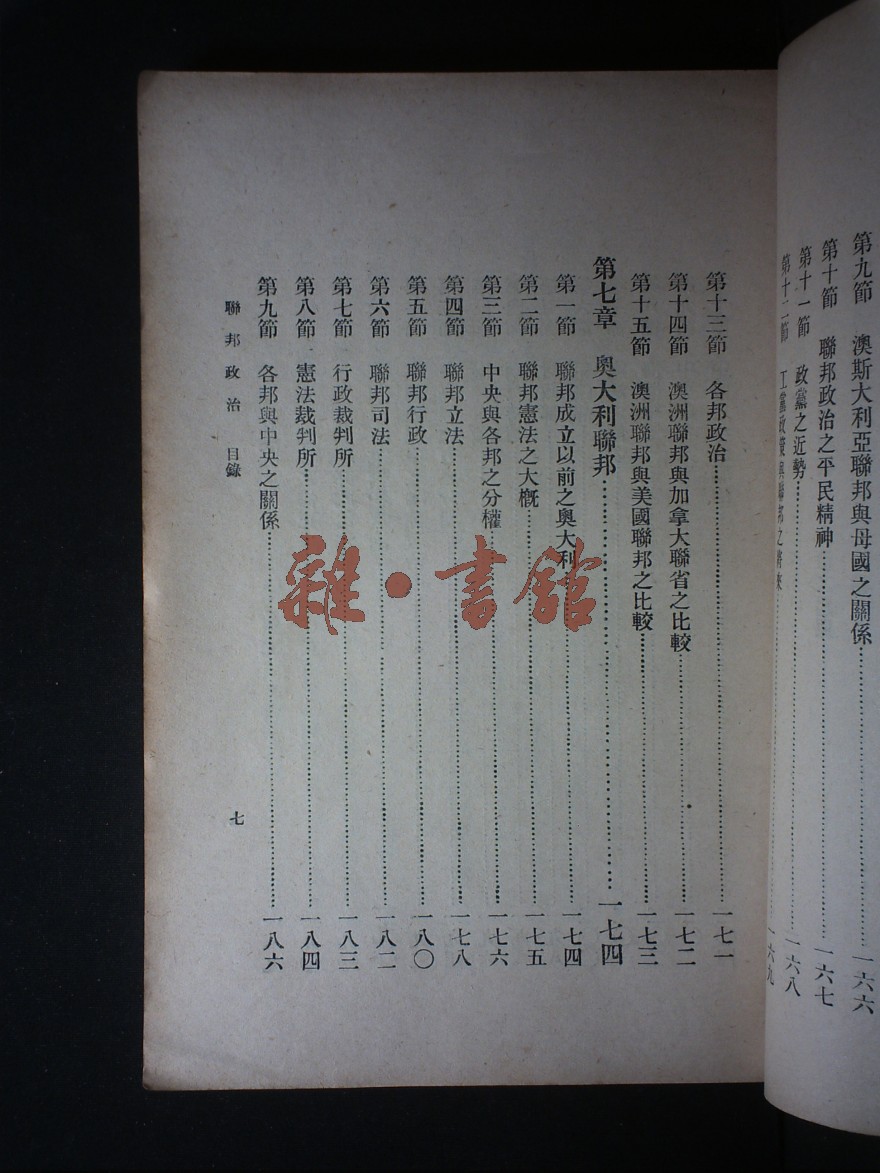 第九節　澳斯大利亞聯邦與母國之關係……一六六
第十節　聯邦政治之平民精神……一六七
第十一節　政黨之近勢……一六八
第十二節　工黨政策與聯邦之將來……一六九
第十三節　各邦政治……一七一
第十四節　澳洲聯邦與加拿大聯省之比較……一七二
第十五節　澳洲聯邦與美國聯邦之比較……一七三
第七章　奧大利聯邦……一七四
第一節　聯邦成立以前之奧大利……一七四
第二節　聯邦憲法之大概……一七五
第三節　中央與各邦之分權……一七六
第四節　聯邦立法……一七八
第五節　聯邦行政……一八〇
第六節　聯邦司法……一八二
第七節　行政裁判所……一八三
第八節　憲法裁判所……一八四
第九節　各邦與中央之關係……一八六
聯邦政治　目錄
七
雜·書館